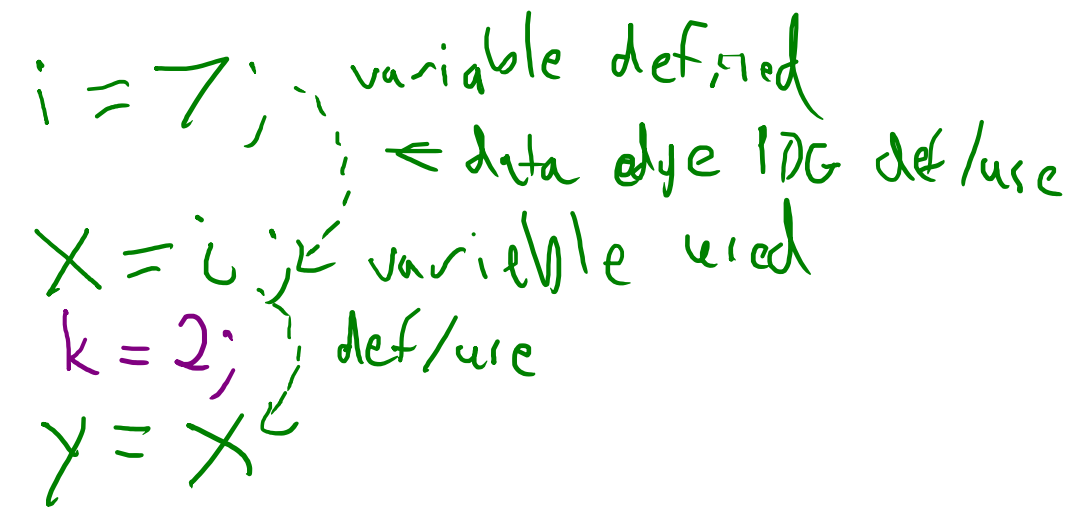 i = 7; variable defined
← data edge PDG def/use
x = i; variable used
k = 2; def/use
y = x